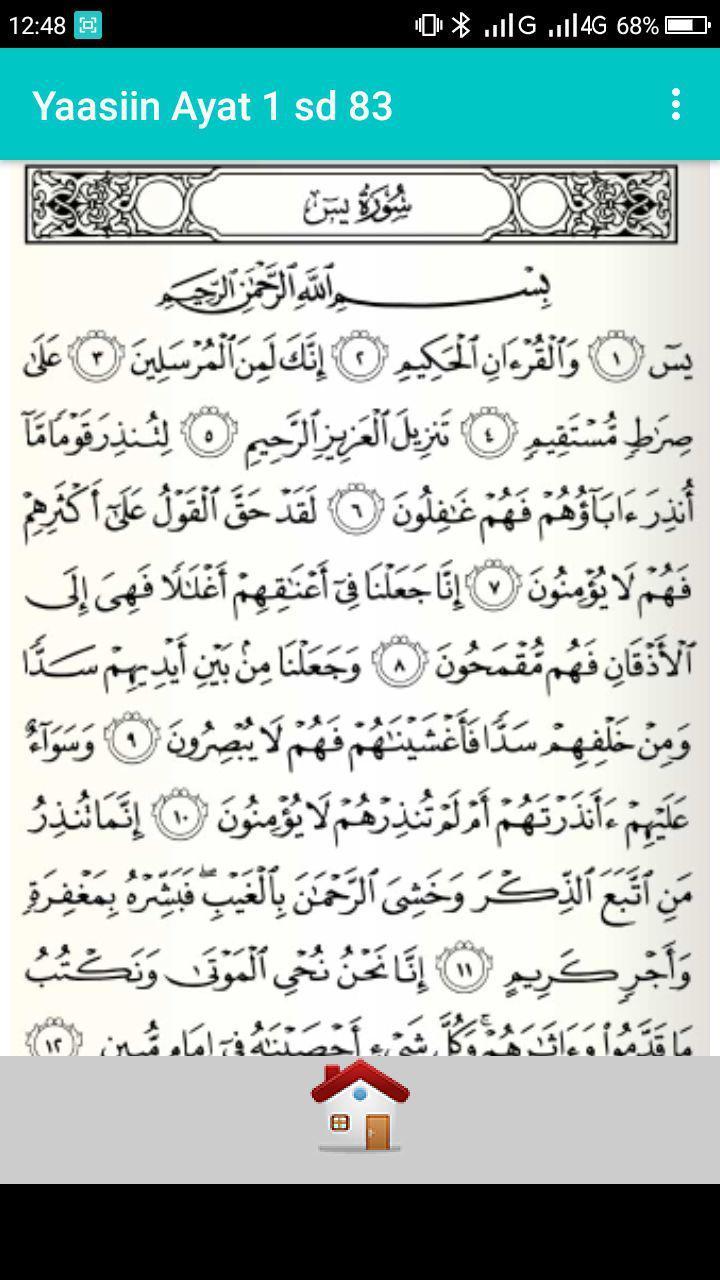 12:48 G 4G 68%
Yaasiin Ayat 1 sd 83
سُورَةُ يسٓ
بِسْمِ ٱللَّهِ ٱلرَّحْمَٰنِ ٱلرَّحِيمِ
يسٓ ١ وَٱلْقُرْءَانِ ٱلْحَكِيمِ ٢ إِنَّكَ لَمِنَ ٱلْمُرْسَلِينَ ٣ عَلَىٰ
صِرَٰطٍ مُّسْتَقِيمٍ ٤ تَنزِيلَ ٱلْعَزِيزِ ٱلرَّحِيمِ ٥ لِتُنذِرَ قَوْمًا مَّآ
أُنذِرَ ءَابَآؤُهُمْ فَهُمْ غَٰفِلُونَ ٦ لَقَدْ حَقَّ ٱلْقَوْلُ عَلَىٰٓ أَكْثَرِهِمْ
فَهُمْ لَا يُؤْمِنُونَ ٧ إِنَّا جَعَلْنَا فِىٓ أَعْنَٰقِهِمْ أَغْلَٰلًا فَهِىَ إِلَى
ٱلْأَذْقَانِ فَهُم مُّقْمَحُونَ ٨ وَجَعَلْنَا مِنۢ بَيْنِ أَيْدِيهِمْ سَدًّا
وَمِنْ خَلْفِهِمْ سَدًّا فَأَغْشَيْنَٰهُمْ فَهُمْ لَا يُبْصِرُونَ ٩ وَسَوَآءٌ
عَلَيْهِمْ ءَأَنذَرْتَهُمْ أَمْ لَمْ تُنذِرْهُمْ لَا يُؤْمِنُونَ ١٠ إِنَّمَا تُنذِرُ
مَنِ ٱتَّبَعَ ٱلذِّكْرَ وَخَشِىَ ٱلرَّحْمَٰنَ بِٱلْغَيْبِ ۖ فَبَشِّرْهُ بِمَغْفِرَةٍ
وَأَجْرٍ كَرِيمٍ ١١ إِنَّا نَحْنُ نُحْىِ ٱلْمَوْتَىٰ وَنَكْتُبُ
مَا قَدَّمُوا۟ وَءَاثَٰرَهُمْ ۚ وَكُلَّ شَىْءٍ أَحْصَيْنَٰهُ فِىٓ إِمَامٍ مُّبِينٍ ١٢